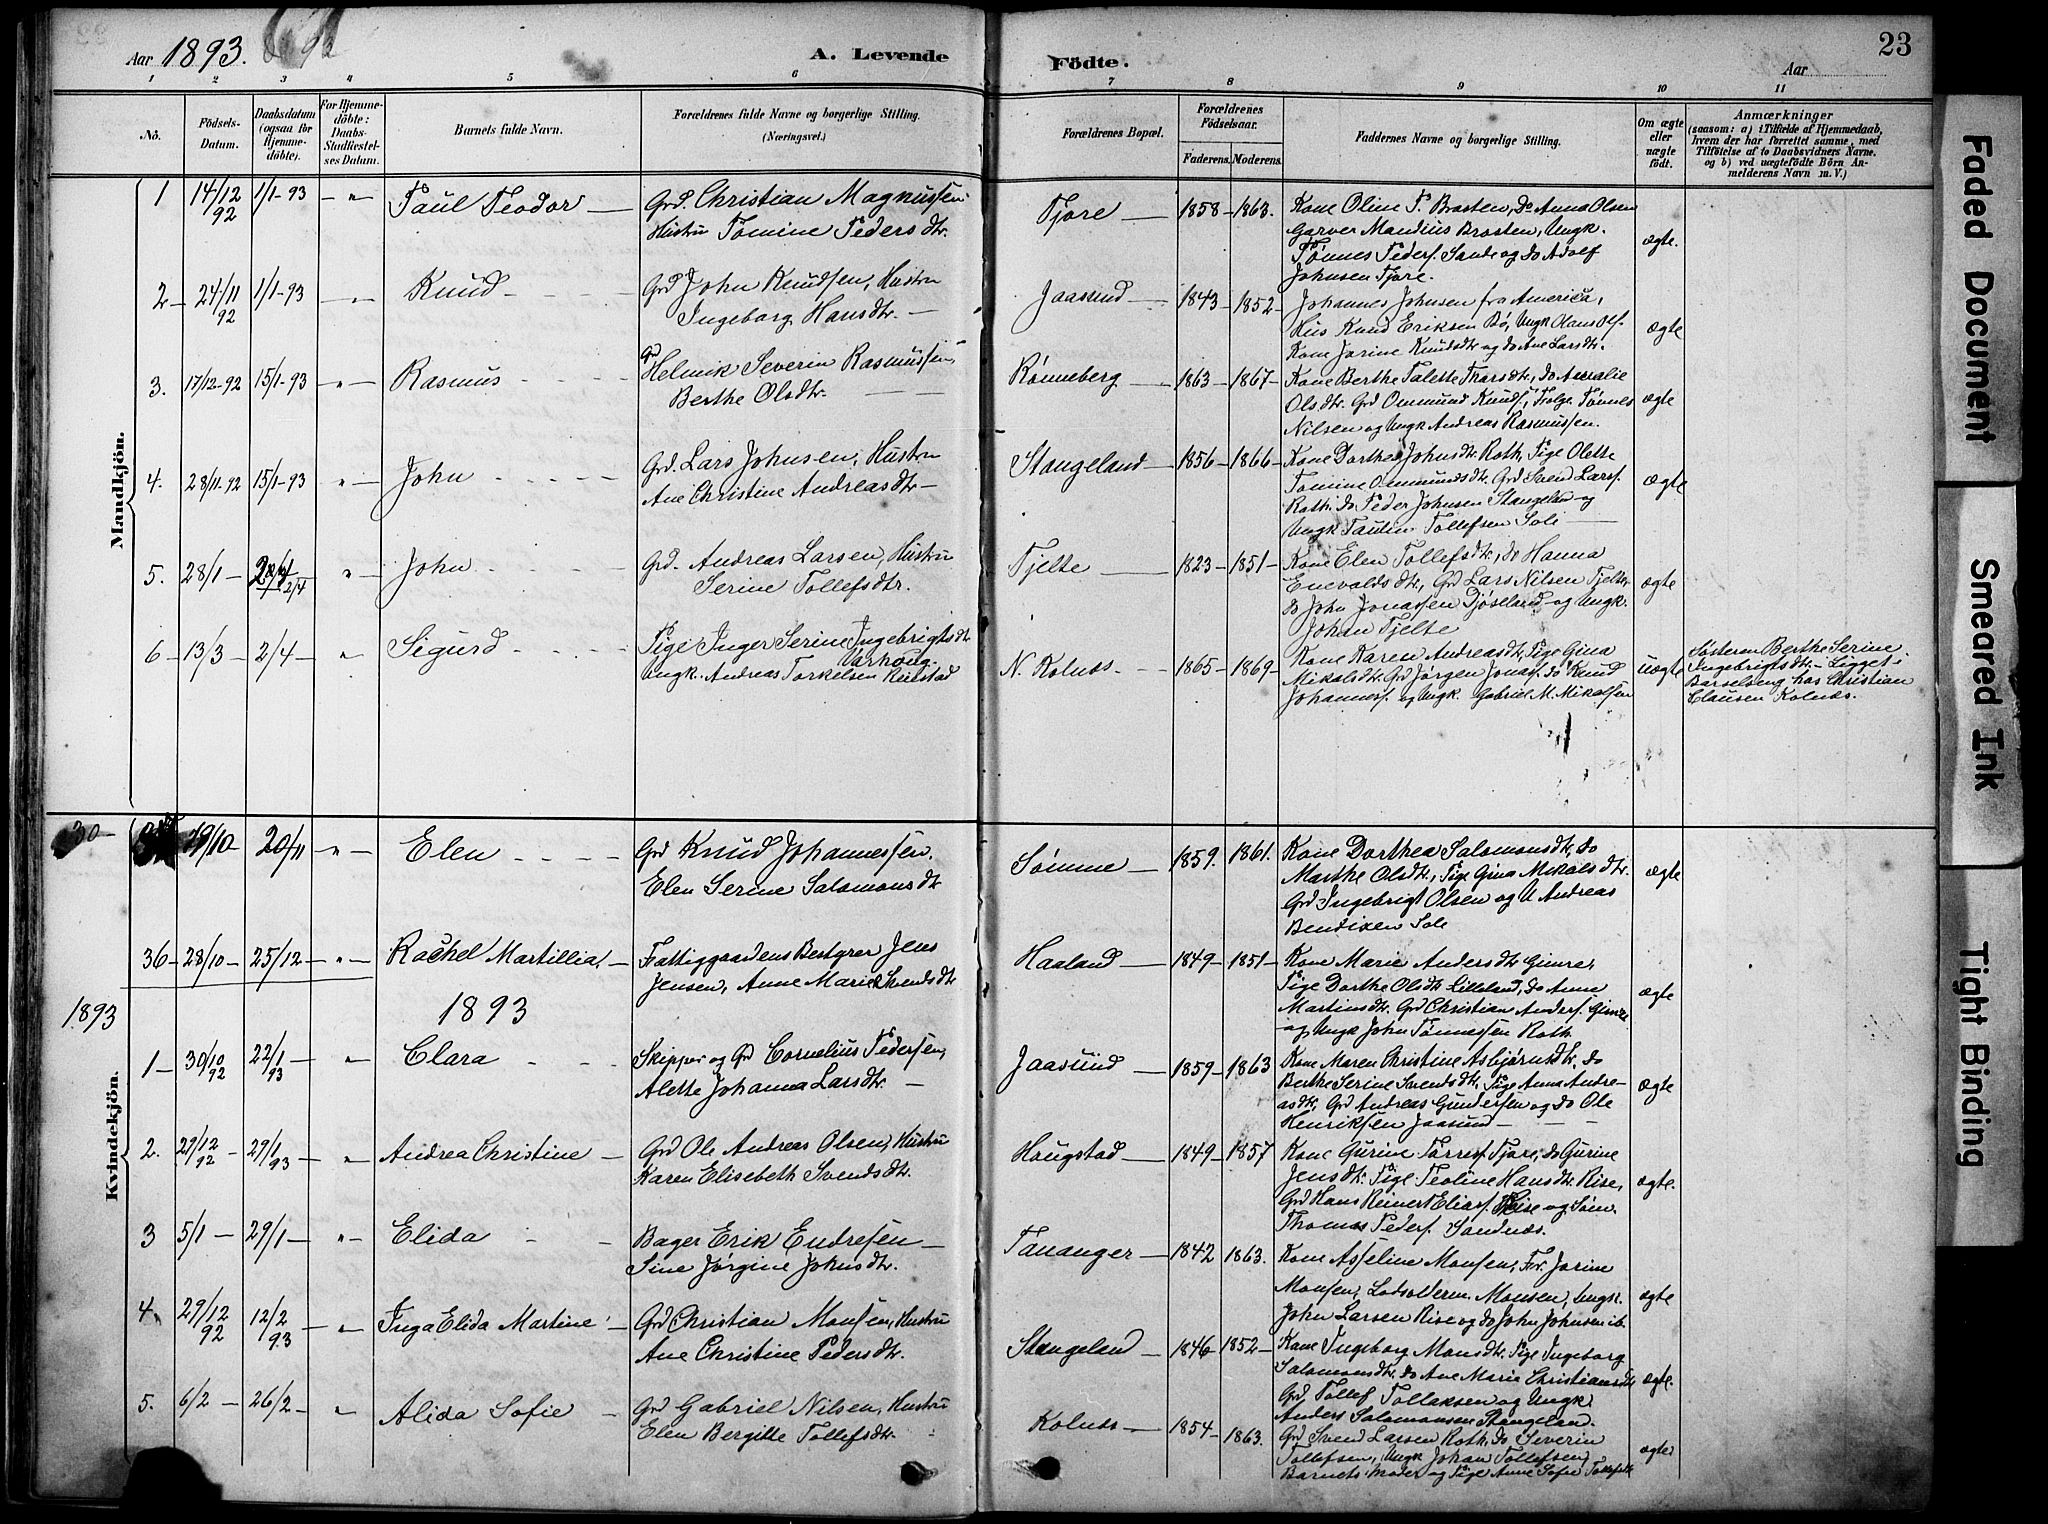 Aar 1893.
A. Levende Födte.
Aar
23
1 2 3 4 5 6 7 8 9 10 11
No.
Födsels-Datum.
Daabsdatum (ogsaa for Hjemme-döbte).
For Hjemme-döbte: Daabs-Stadfæstel-ses Datum.
Barnets fulde Navn.
Forældrenes fulde Navne og borgerlige Stilling.
(Næringsvei.)
Forældrenes Bopæl.
Forældrenes Födselsaar.
Faderens. Moderens.
Faddernes Navne og borgerlige Stilling.
Om ægte eller uægte födt.
Anmærkninger
(saasom: a) i Tilfælde af Hjemmedaab,
hvem der har forrettet samme, med
Tilföielse af to Daabsvidners Navne.
og b) ved uægtefödte Börn An-
melderens Navn m. V.)
Mandkjön.
1 14/12 92 1/1-93 - " - Paul Teodor — Grd. Christian Magnussen
Hustru Tomine Pedersdtr.
Tjore — 1858 - 1863.
Kone Oline P. Brasten, do Anna Olsen
Garver Mandius Brosten, Ungk.
Tønnes Peders. Sande og do Adolf
Johnsen Tjore.
ægte.
2 - 24/11 92 1/1-93 Knud Grd John Knudsen, Hustru
Ingeborg Hansdtr. -
Jaasund — 1843 - 1852 -
Johannes Johnsen fra America,
Hus Knud Eriksen Bø, Ungk Hans Ols.
Kone Jorine Knudsdtr og do Ane Larsdtr.
ægte
3. 17/12-92 15/1-93 " - Rasmus Grd Helmik Severin Rasmussen,
Berthe Olsdtr.
Rønneberg 1863 - 1867 -
Kone Berthe Talette Tharsdtr, do Amalie
Olsdtr. Grd Ommund Knuds., Frølge Tønnes
Nilsen og Ungk Andreas Rasmussen.
ægte
4. 28/11-92 15/1-93 " - John Grd. Lars Johnsen, Hustru
Ane Christine Andreasdtr -
Stangeland — 1856 - 1866 -
Kone Dorthea Johnsdtr Roth, Pige Olette
Tomine Ommundsdtr. Grd Sven Lars.
Roth. do Peder Johnsen Stangeland og
Ungk Paulin Tollefsen Sole —
ægte
5. 28/1 - 2/4 " - John Grd. Andreas Larsen, Hustru
Serine Tollefsdtr.
Tjelte — 1823 - 1851 -
Kone Elen Tollefsdtr, do Hanna
Enevaldsdtr, Grd Lars Nilsen Tjelte,
do John Jonassen Tjøseland og Ungk.
Johan Tjelte
ægte
6 - 13/3 - 2/4 - " Sigurd Pige Inger Serine Ingebrigtsdtr
Varhoug.
Ungk. Andreas Torkelsen Reustad
N. Kolnes - 1865 - 1869 -
Kone Karen Andreasdtr, Pige Gina
Mikalsdtr. Grd Jørgen Jonas. do Knud
Johannes. og Ungk. Gabriel M. Mikalsen
uægte
Søsteren Berthe Serine
Ingebrigtsdtr. - Ligget i
Barselseng hos Christian
Clausen Kolnes.
Kvindekjön.
30 - 19/10 - 20/11 - " - Elen Grd Knud Johannessen.
Elen Serine Salamonsdtr
Sømme — 1859. 1861.
Kone Dorthea Salomonsdtr, do
Marthe Olsdtr., Pige Gina Mikalsdtr.
Grd Ingebrigt Olsen og U Andreas
Bendixen Sole
ægte
36 - 28/10 - 25/12 - " - Rachel Martillia, - Fattiggaardens Bestyrer Jens
Jensen, Anne Marie Svendsdtr
Haaland — 1849 - 1851 -
Kone Marie Andersdtr Gimre,
Pige Dorthe Olsdtr Lilleland, do Anne
Martinsdtr. Grd Christian Anders. Gimre
og Ungk John Tønnessen Roth
ægte
1893 1893
1 - 30/10 92 22/1 93 - " Clara Skipper og Grd Cornelius Pedersen,
Alette Johanna Larsdtr. -
Jaasund — 1859 - 1863
Kone Maren Christine Asbjørnsdtr. do
Berthe Serine Svendsdtr. Pige Anna Andre-
asdtr, Grd Andreas Gundersen og do Ole
Henriksen Jaasund -
ægte
2. 29/12 92 - 29/1 93 - " Andrea Christine - Grd Ole Andreas Olsen, Hustru
Karen Elisebeth Svendsdtr.
Haugstad — 1849 - 1857
Kone Gurine Torres. Tjore, do Gurine
Jensdtr. Pige Teoline Hansdtr. Rise,
Grd Hans Reinert Elias. Rise og Søm.
Thomas Peders. Sandnes.
ægte.
3 5/1 - 29/1 - " - Elida Bager Erik Endresen -
Sine Jørgine Johnsdtr.
Tananger — 1842 1863.
Kone Asseline Monsen, Frk. Jorine
Monsen, Lodsolderm. Monsen, Ungk.
John Larsen Rise og do John Johnsen ib.
ægte
4. 29/12 92 12/2 93 - " Inga Elida Martine Grd Christian Monsen, Hustru
Ane Christine Pedersdtr.
Stangeland — 1846 - 1852 -
Kone Ingeborg Monsdtr. Pige Ingeborg
Salomonsdtr. do Ane Marie Christiansdtr
Grd Tollef Tollaksen og Ungk.
Anders Salomonsen Stangeland.
ægte.
5. 6/2 - 26/2 - " Alida Sofie - Grd Gabriel Nilsen, Hustru
Elen Bergitte Tollefsdtr.
Kolnes — 1854 - 1863.
Grd Svend Larsen Roth, do Severin
Tollefsen, Ungk Johan Tollefsen,
Barnets Moder og Pige Anne Sofie Tollefsdtr
ægte
Faded Document
Smeared Ink
Tight Binding